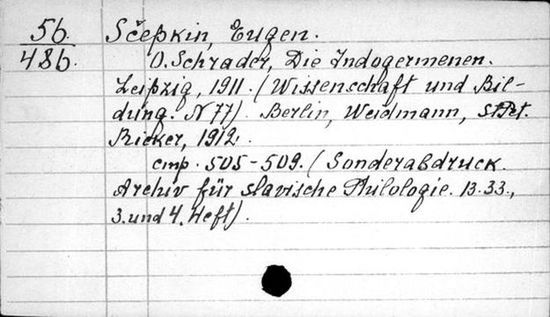 56
486.
Sčepkin, Eugen.
O. Schrader, Die Indogermenen.
Leipzig, 1911. (Wissenschaft und Bil-
dung. N 77). Berlin, Weidmann, St Pet.
Ricker, 1912.
cmp. 505-509. (Sonderabdruck.
Archiv für slavische Philologie. B. 33.,
3. und 4. Heft).